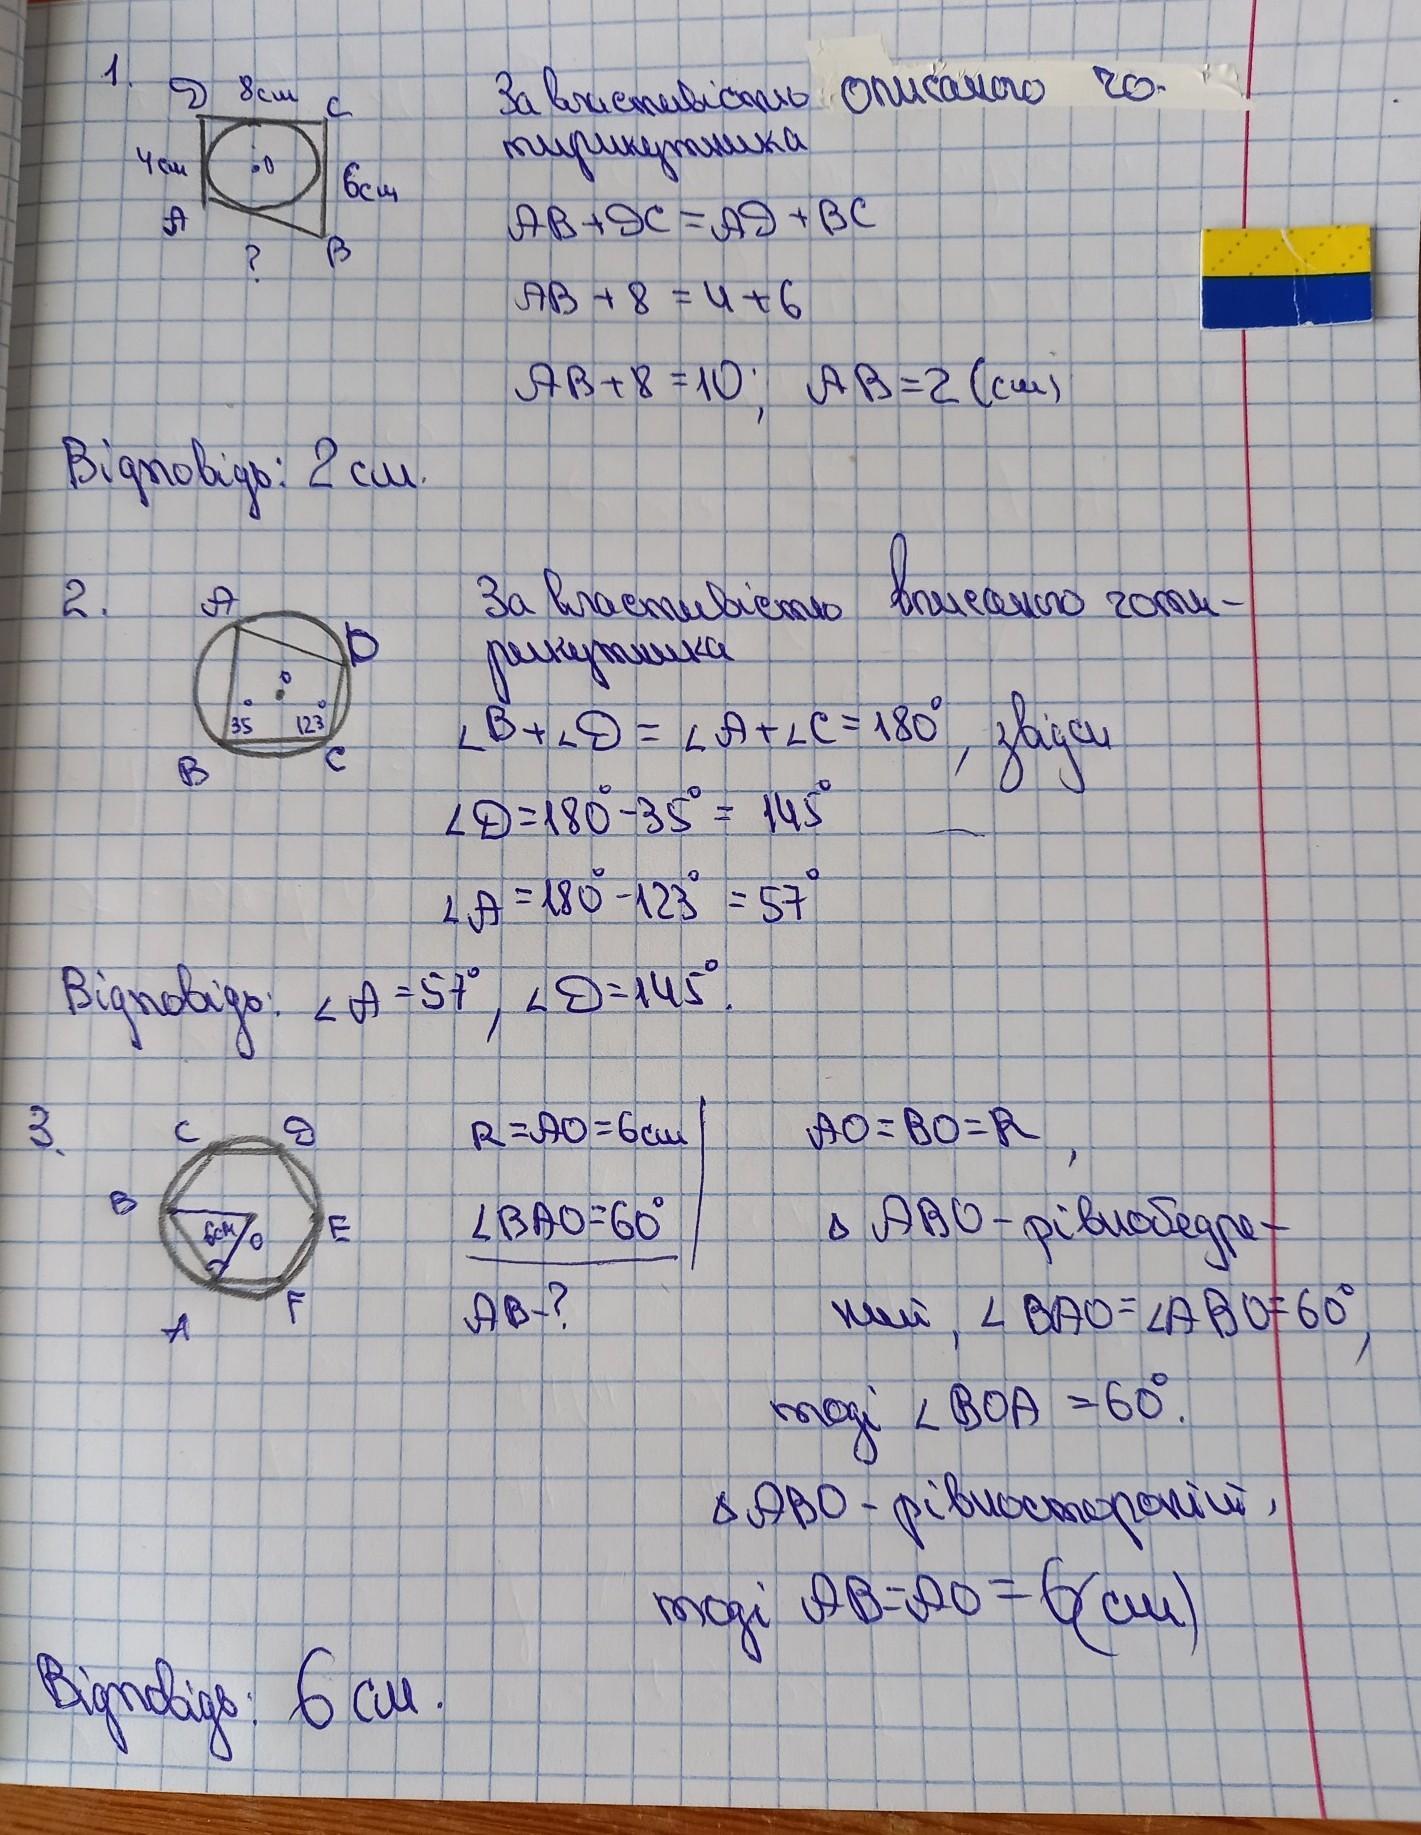 1.
D 8см C
4см
.O
6см
A
? B
За властивістю описаного чо-
тирикутника
AB + DC = AD + BC
AB + 8 = 4 + 6
AB + 8 = 10; AB = 2 (см)
Відповідь: 2 см.
2.
A
D
O
35° 123°
B C
За властивістю вписаного чоти-
рикутника
∠B + ∠D = ∠A + ∠C = 180°, звідси
∠D = 180° - 35° = 145°
∠A = 180° - 123° = 57°
Відповідь: ∠A = 57°, ∠D = 145°.
3.
C D
B
6см O E
A F
R = AO = 6см
∠BAO = 60°
AB - ?
AO = BO = R,
△ ABO - рівнобедре-
ний, ∠BAO = ∠ABO = 60°,
тоді ∠BOA = 60°.
△ ABO - рівносторонній,
тоді AB = AO = 6(см)
Відповідь: 6 см.